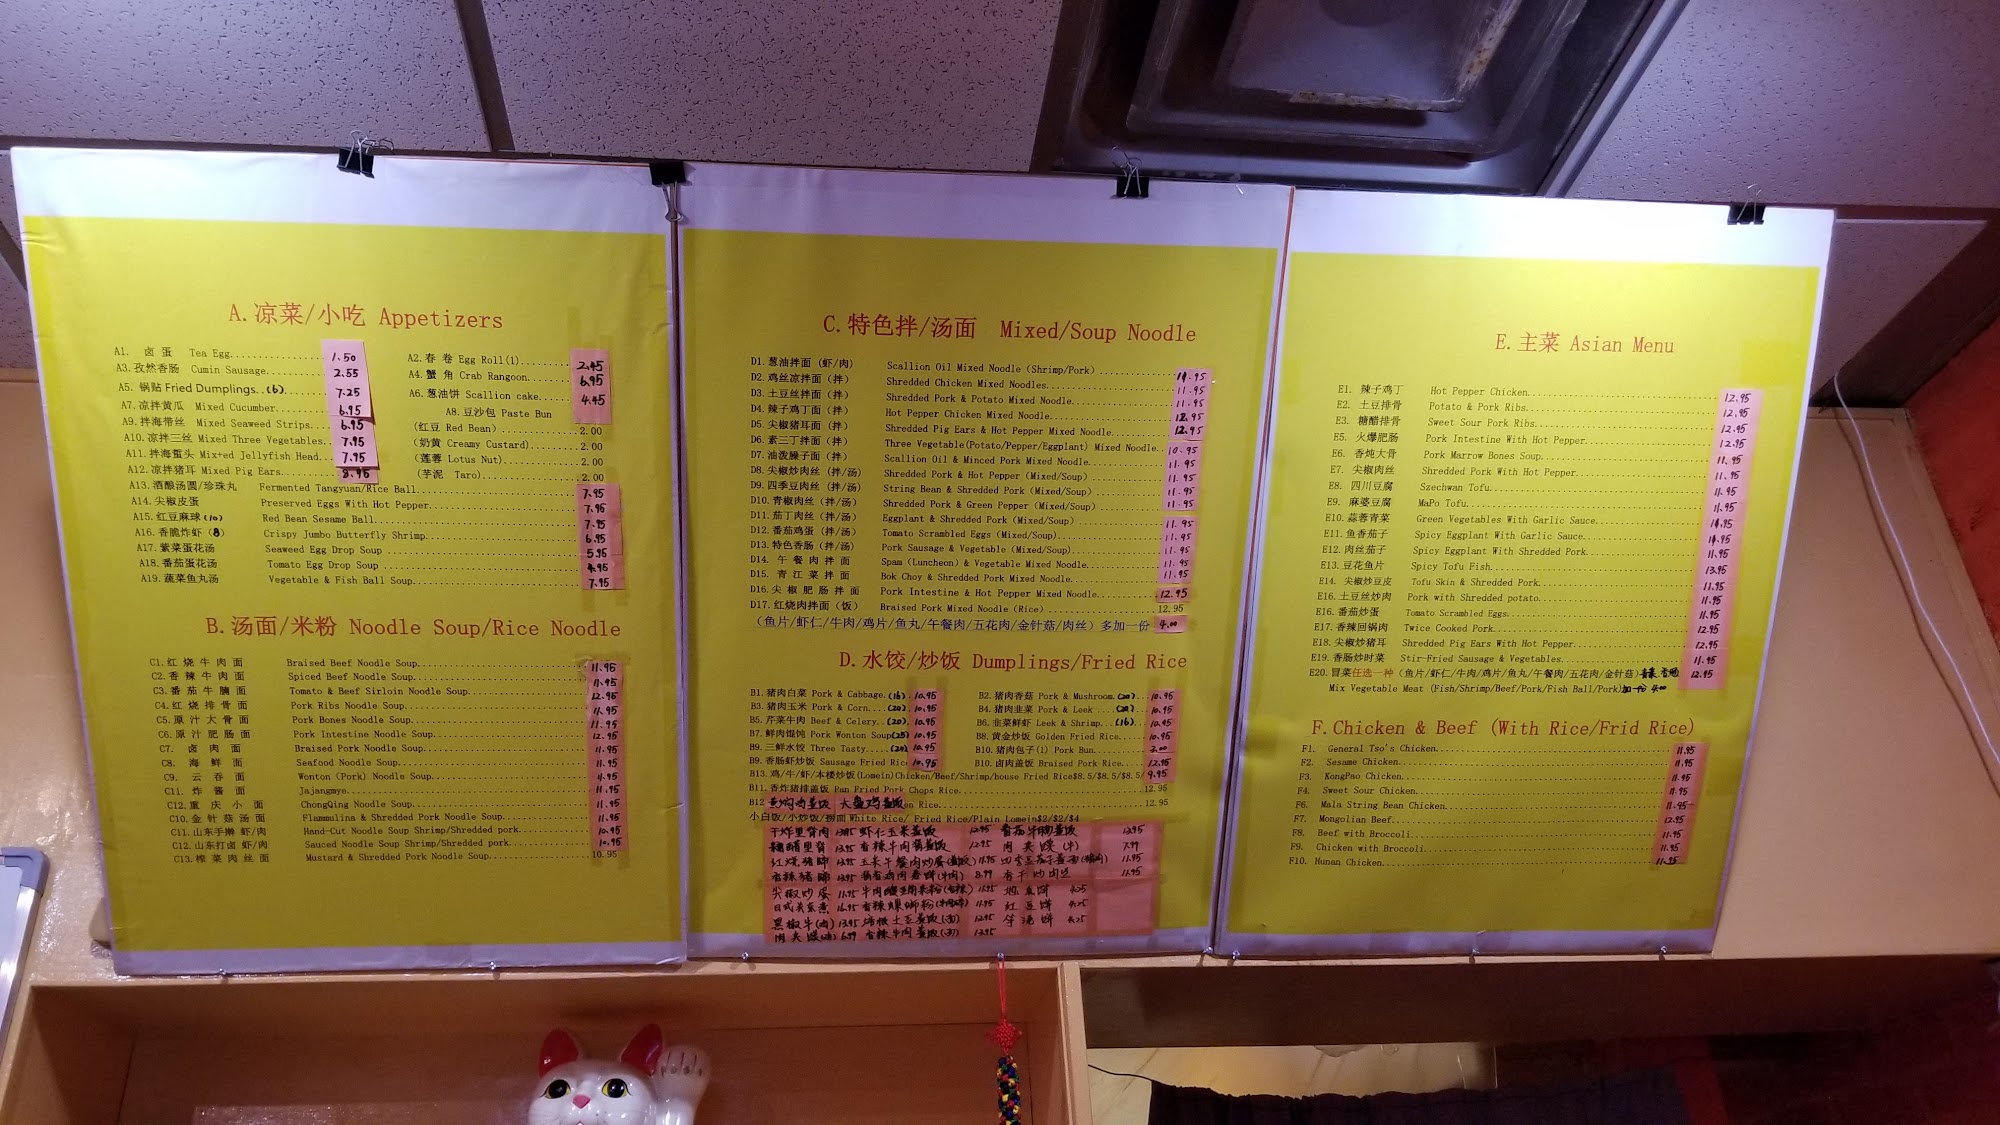 A.凉菜/小吃 Appetizers
A1. 卤 蛋 Tea Egg 1.50
A2.春 卷 Egg Roll(1) 2.45
A3.孜然香肠 Cumin Sausage 2.55
A4.蟹 角 Crab Rangoon 6.95
A5.锅贴 Fried Dumplings..(6) 7.25
A6.葱油饼 Scallion cake 4.45
A7.凉拌黄瓜 Mixed Cucumber 6.95
A8.豆沙包 Paste Bun
A9.拌海带丝 Mixed Seaweed Strips 6.95
(红豆 Red Bean) 2.00
A10.凉拌三丝 Mixed Three Vegetables 7.95
(奶黄 Creamy Custard) 2.00
A11.拌海蜇头 Mix+ed Jellyfish Head 7.95
(莲蓉 Lotus Nut) 2.00
A12.凉拌猪耳 Mixed Pig Ears 8.95
(芋泥 Taro) 2.00
A13.酒酿汤圆/珍珠丸 Fermented Tangyuan/Rice Ball 7.95
A14.尖椒皮蛋 Preserved Eggs With Hot Pepper 7.95
A15.红豆麻球(10) Red Bean Sesame Ball 7.95
A16.香脆炸虾(8) Crispy Jumbo Butterfly Shrimp 6.95
A17.紫菜蛋花汤 Seaweed Egg Drop Soup 5.95
A18.番茄蛋花汤 Tomato Egg Drop Soup 4.95
A19.蔬菜鱼丸汤 Vegetable & Fish Ball Soup 7.95
B.汤面/米粉 Noodle Soup/Rice Noodle
C1.红 烧 牛 肉 面 Braised Beef Noodle Soup 11.95
C2.香 辣 牛 肉 面 Spiced Beef Noodle Soup 11.95
C3.番 茄 牛 腩 面 Tomato & Beef Sirloin Noodle Soup 12.95
C4.红 烧 排 骨 面 Pork Ribs Noodle Soup 11.95
C5.原 汁 大 骨 面 Pork Bones Noodle Soup 11.95
C6.原 汁 肥 肠 面 Pork Intestine Noodle Soup 12.95
C7. 卤 肉 面 Braised Pork Noodle Soup 11.95
C8. 海 鲜 面 Seafood Noodle Soup 11.95
C9. 云 吞 面 Wonton (Pork) Noodle Soup 11.95
C11. 炸 酱 面 Jajangmye 11.95
C12.重 庆 小 面 ChongQing Noodle Soup 11.95
C10.金 针 菇 汤 面 Flammulina & Shredded Pork Noodle Soup 11.95
C11.山东手擀 虾/肉 Hand-Cut Noodle Soup Shrimp/Shredded pork 10.95
C12.山东打卤 虾/肉 Sauced Noodle Soup Shrimp/Shredded pork 10.95
C13.榨 菜 肉 丝 面 Mustard & Shredded Pork Noodle Soup 10.95
C.特色拌/汤面 Mixed/Soup Noodle
D1.葱油拌面 (虾/肉) Scallion Oil Mixed Noodle (Shrimp/Pork) 11.95
D2.鸡丝凉拌面 (拌) Shredded Chicken Mixed Noodles 11.95
D3.土豆丝拌面 (拌) Shredded Pork & Potato Mixed Noodle 11.95
D4.辣子鸡丁面 (拌) Hot Pepper Chicken Mixed Noodle 12.95
D5.尖椒猪耳面 (拌) Shredded Pig Ears & Hot Pepper Mixed Noodle 12.95
D6.素三丁拌面 (拌) Three Vegetable(Potato/Pepper/Eggplant) Mixed Noodle 10.95
D7.油泼臊子面 (拌) Scallion Oil & Minced Pork Mixed Noodle 11.95
D8.尖椒炒肉丝 (拌/汤) Shredded Pork & Hot Pepper (Mixed/Soup) 11.95
D9.四季豆肉丝 (拌/汤) String Bean & Shredded Pork (Mixed/Soup) 11.95
D10.青椒肉丝 (拌/汤) Shredded Pork & Green Pepper (Mixed/Soup) 11.95
D11.茄丁肉丝 (拌/汤) Eggplant & Shredded Pork (Mixed/Soup) 11.95
D12.番茄鸡蛋 (拌/汤) Tomato Scrambled Eggs (Mixed/Soup) 11.95
D13.特色香肠 (拌/汤) Pork Sausage & Vegetable (Mixed/Soup) 11.95
D14. 午 餐 肉 拌 面 Spam (Luncheon) & Vegetable Mixed Noodle 11.95
D15. 青 江 菜 拌 面 Bok Choy & Shredded Pork Mixed Noodle 11.95
D16.尖 椒 肥 肠 拌 面 Pork Intestine & Hot Pepper Mixed Noodle 12.95
D17.红烧肉拌面 (饭) Braised Pork Mixed Noodle (Rice) 12.95
(鱼片/虾仁/牛肉/鸡片/鱼丸/午餐肉/五花肉/金针菇/肉丝) 多加一份 4.00
D.水饺/炒饭 Dumplings/Fried Rice
B1.猪肉白菜 Pork & Cabbage.(16) 10.95
B2.猪肉香菇 Pork & Mushroom.(20) 10.95
B3.猪肉玉米 Pork & Corn (20) 10.95
B4.猪肉韭菜 Pork & Leek (20) 10.95
B5.芹菜牛肉 Beef & Celery..(20) 10.95
B6.韭菜鲜虾 Leek & Shrimp...(16) 10.95
B7.鲜肉馄饨 Pork Wonton Soup(25) 10.95
B8.黄金炒饭 Golden Fried Rice 10.95
B9.三鲜水饺 Three Tasty (20) 10.95
B10.猪肉包子(1) Pork Bun 2.00
B9.香肠虾炒饭 Sausage Fried Rice 10.95
B10.卤肉盖饭 Braised Pork Rice 12.95
B13.鸡/牛/虾/本楼炒饭(Lomein)Chicken/Beef/Shrimp/house Fried Rice$8.5/$8.5/$8.5/ 9.95
B11.香炸猪排盖饭 Pan Fried Pork Chops Rice 12.95
B12 黄焖鸡盖饭 大盘鸡盖饭 en Rice 12.95
小白饭/小炒饭/捞面 White Rice/ Fried Rice/Plain Lomein$2/$2/$4
干炸里脊肉 13.95 虾仁玉米盖饭 12.95 番茄牛腩盖饭 13.95
糖醋里脊 13.95 香辣牛肉盖饭 12.95 肉夹馍 (牛) 7.99
红烧猪蹄 13.95 玉米午餐肉炒蛋(盖饭) 11.95 11.95
香辣猪蹄 13.95 8.99 香干炒肉丝 11.95
尖椒炒蛋 11.95 11.95 地瓜饼 6.25
日式关东煮 16.95 香辣螺蛳粉 11.95 红豆饼 6.25
黑椒牛(肉) 13.95 土豆盖饭 12.95 芋泥饼 6.25
肉夹馍 6.99 香辣牛肉盖饭 13.95
E.主菜 Asian Menu
E1. 辣子鸡丁 Hot Pepper Chicken 12.95
E2. 土豆排骨 Potato & Pork Ribs 12.95
E3. 糖醋排骨 Sweet Sour Pork Ribs 12.95
E5. 火爆肥肠 Pork Intestine With Hot Pepper 12.95
E6. 香炖大骨 Pork Marrow Bones Soup 11.95
E7. 尖椒肉丝 Shredded Pork With Hot Pepper 11.95
E8. 四川豆腐 Szechwan Tofu 11.95
E9. 麻婆豆腐 MaPo Tofu 11.95
E10.蒜蓉青菜 Green Vegetables With Garlic Sauce 11.95
E11.鱼香茄子 Spicy Eggplant With Garlic Sauce 11.95
E12.肉丝茄子 Spicy Eggplant With Shredded Pork 11.95
E13.豆花鱼片 Spicy Tofu Fish 13.95
E14. 尖椒炒豆皮 Tofu Skin & Shredded Pork 11.95
E16.土豆丝炒肉 Pork with Shredded potato 11.95
E16.番茄炒蛋 Tomato Scrambled Eggs 11.95
E17.香辣回锅肉 Twice Cooked Pork 12.95
E18.尖椒炒猪耳 Shredded Pig Ears With Hot Pepper 12.95
E19.香肠炒时菜 Stir-Fried Sausage & Vegetables 11.95
E20.冒菜任选一种 (鱼片/虾仁/牛肉/鸡片/鱼丸/午餐肉/五花肉/金针菇) 12.95
Mix Vegetable Meat (Fish/Shrimp/Beef/Pork/Fish Ball/Pork)加一份 4.00
F.Chicken & Beef (With Rice/Frid Rice)
F1. General Tso's Chicken 11.95
F2. Sesame Chicken 11.95
F3. KongPao Chicken 11.95
F4. Sweet Sour Chicken 11.95
F6. Mala String Bean Chicken 11.95
F7. Mongolian Beef 12.95
F8. Beef with Broccoli 11.95
F9. Chicken with Broccoli 11.95
F10. Hunan Chicken 11.95